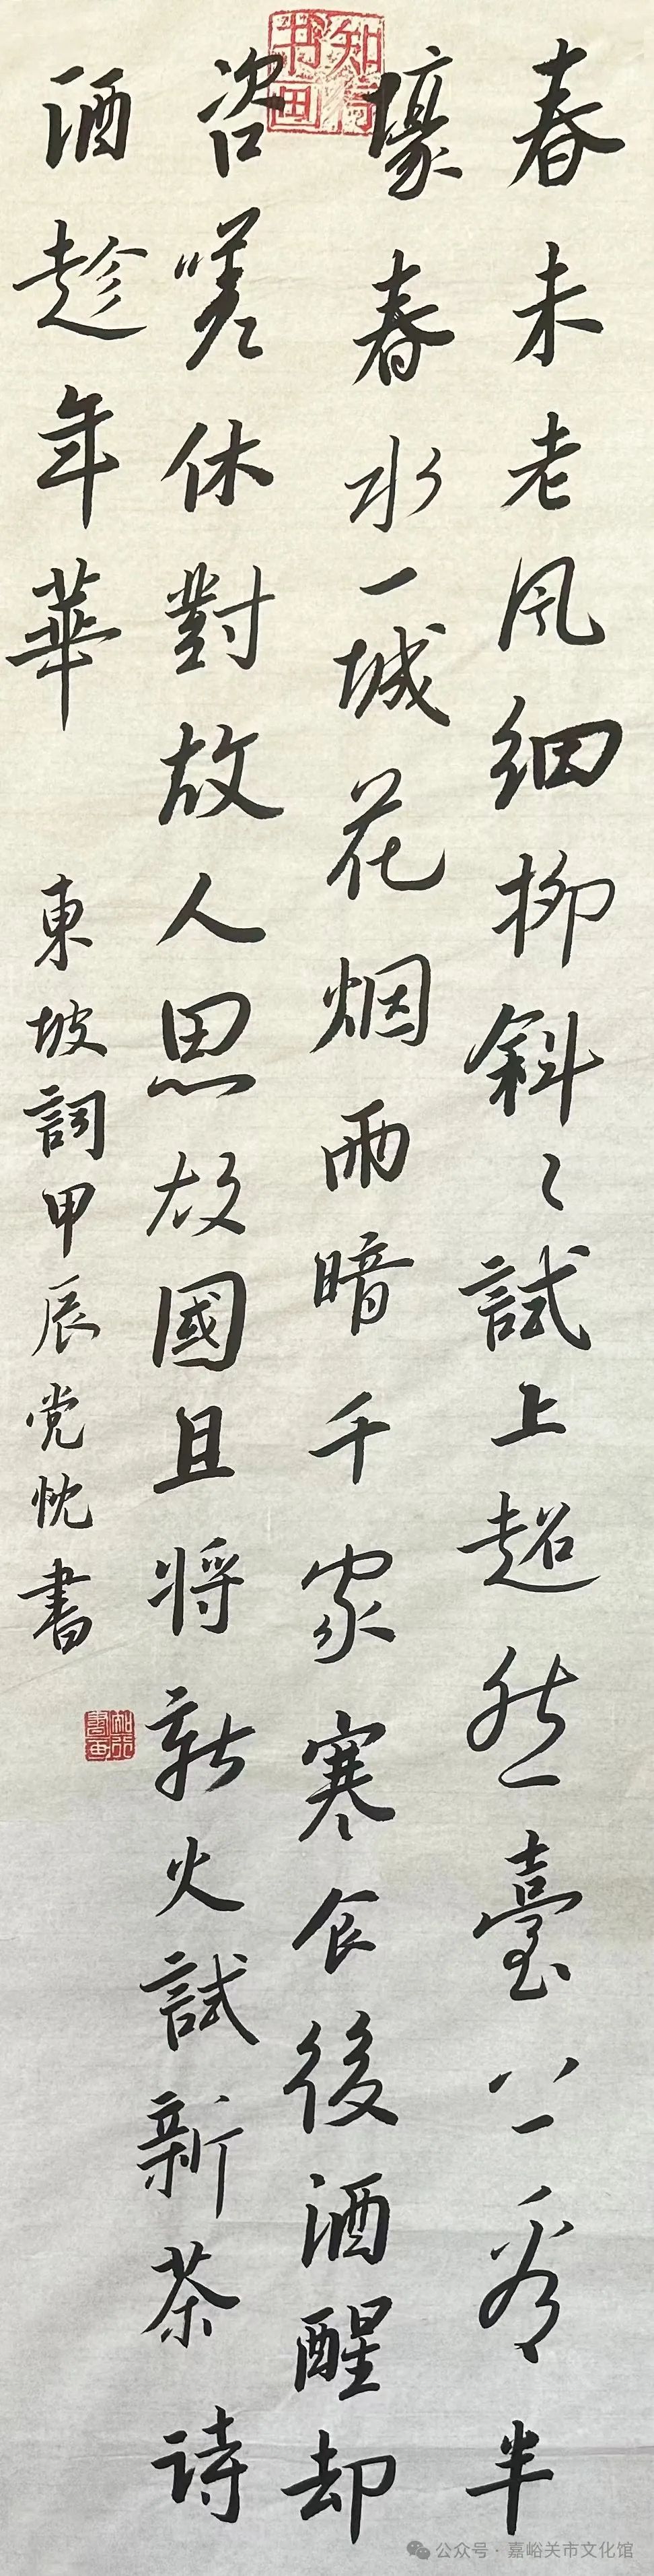 春未老风細柳斜々試上超然臺上看半
壕春水一城花烟雨暗千家寒食後酒醒却
咨嗟休對故人思故國且将新火試新茶诗
酒趁年華
東坡詞甲辰党忱書
知行书画
知行書画
公众号·嘉峪关市文化馆